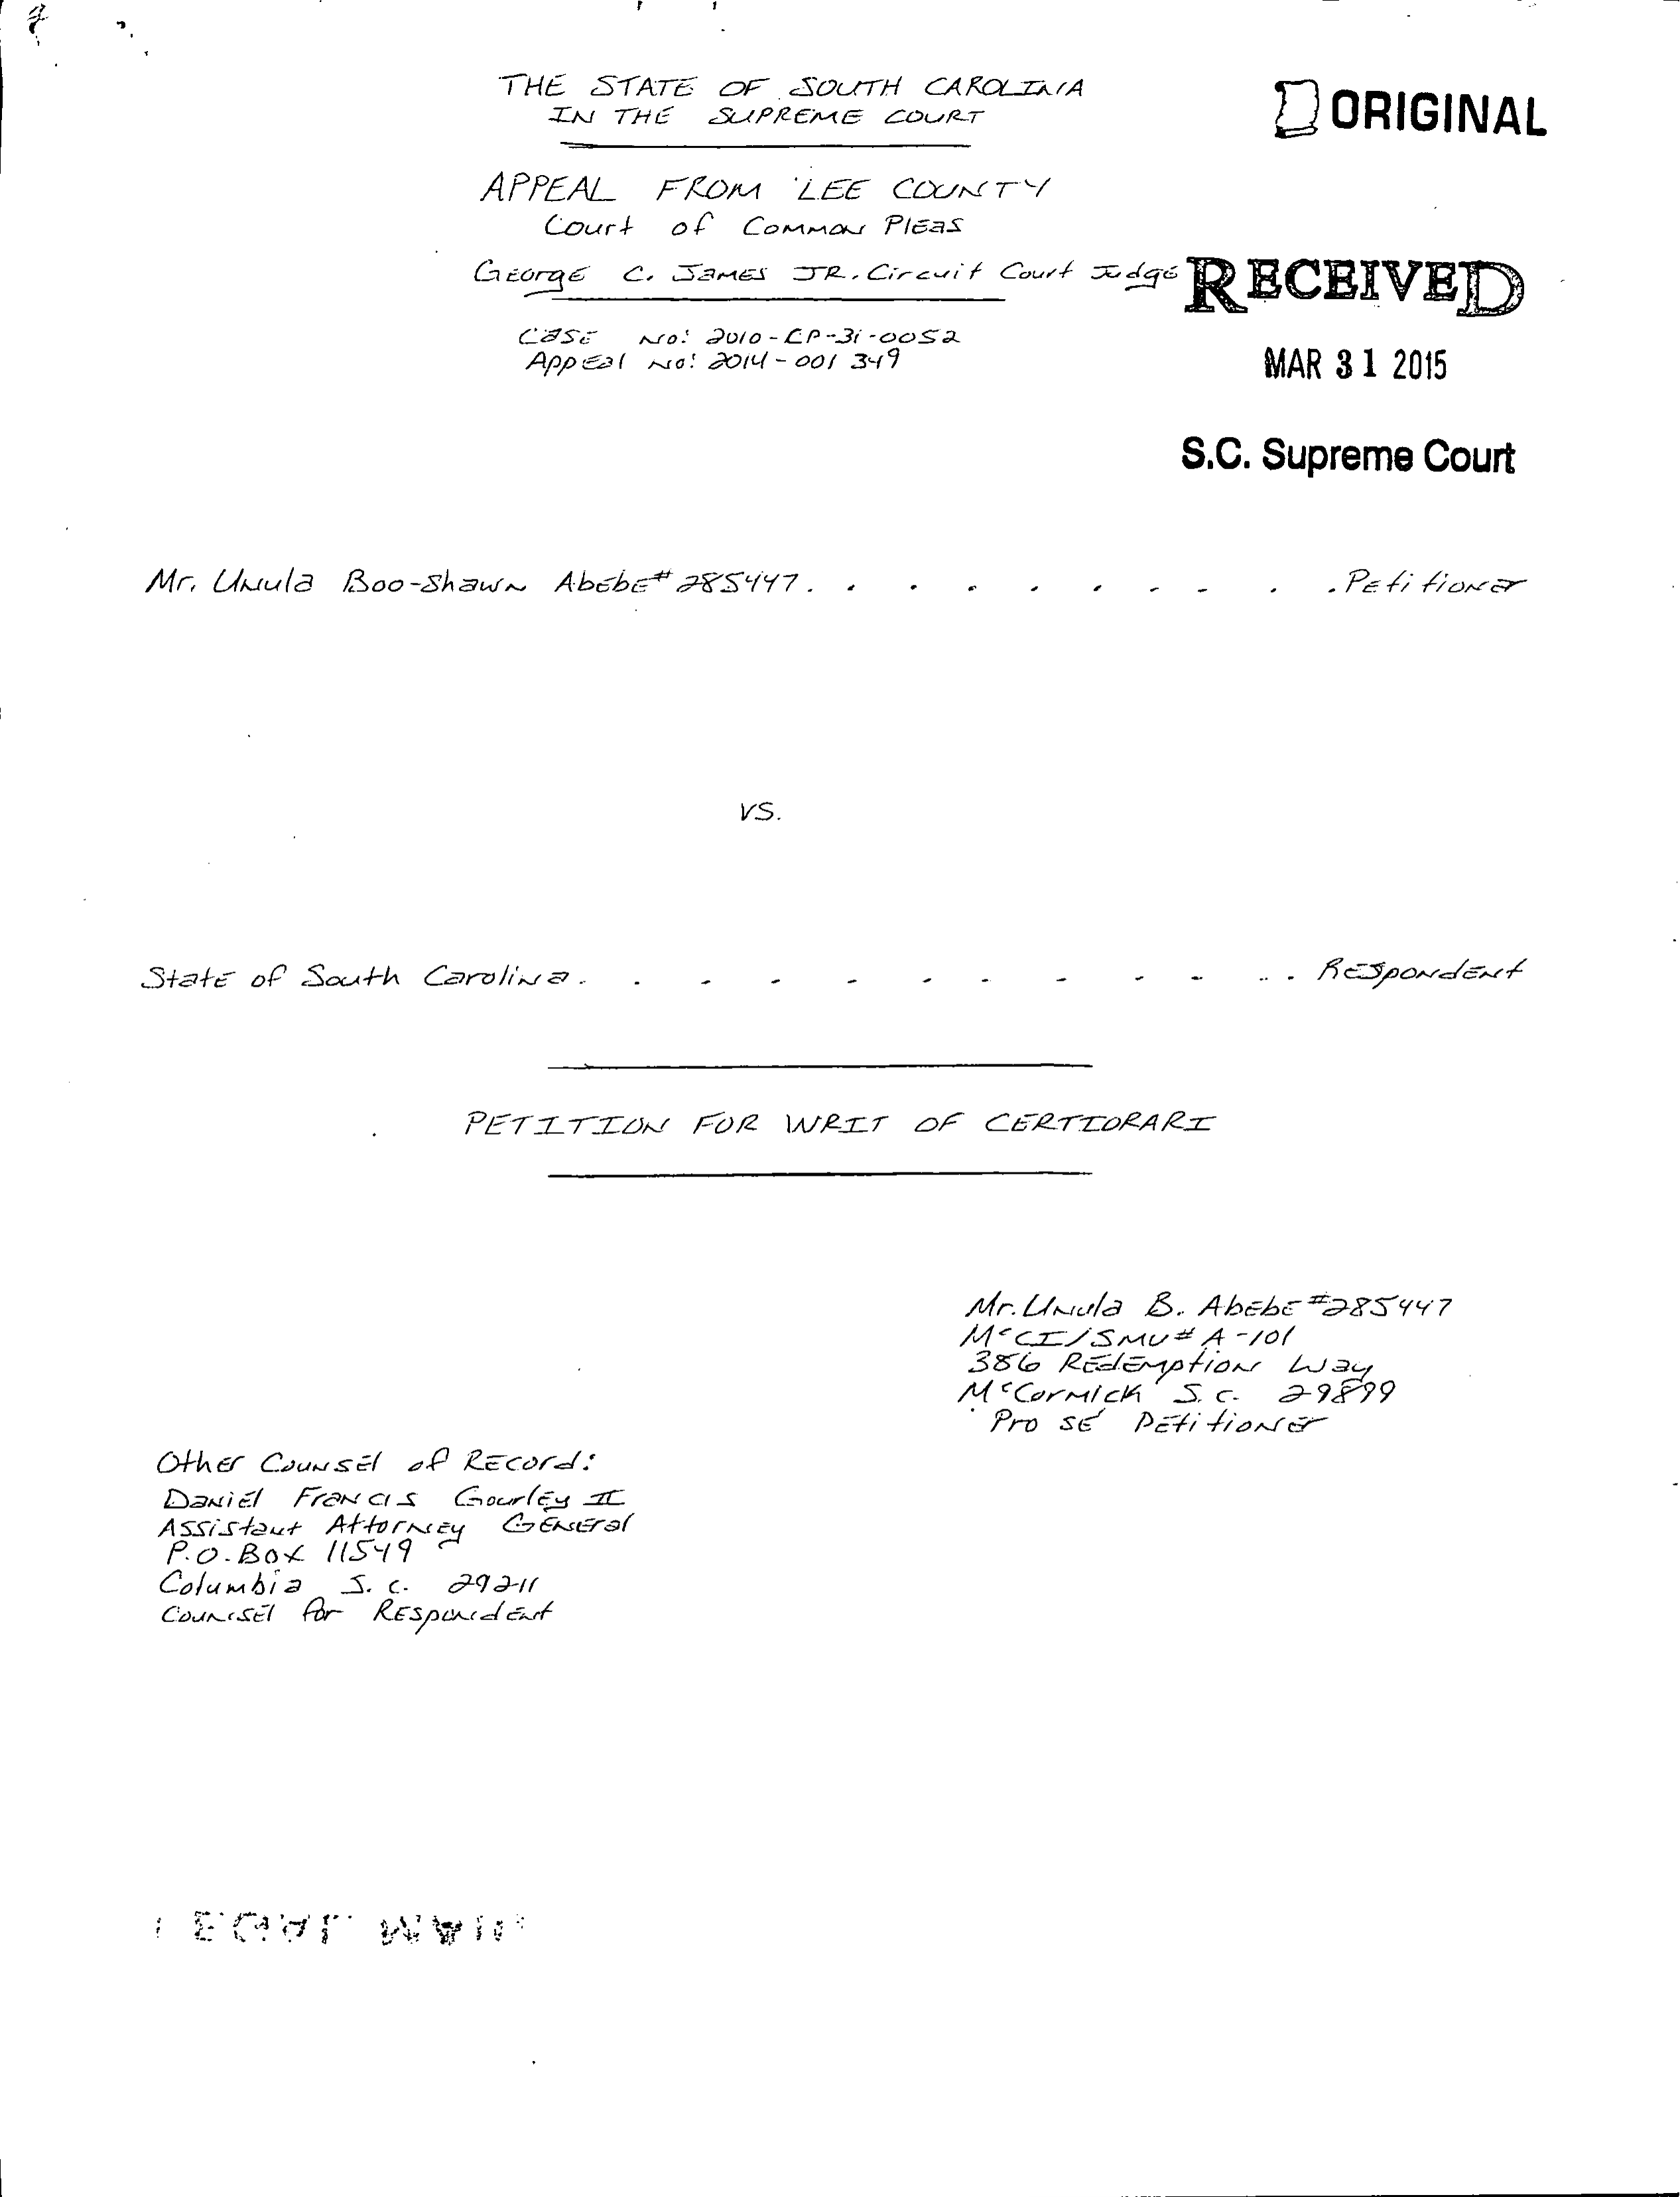 THE STATE OF SOUTH CAROLINA
IN THE SUPREME COURT
ORIGINAL
APPEAL FROM LEE COUNTY
Court of Common Pleas
George C. James JR. Circuit Court Judge
RECEIVED
Case No: 2010-CP-31-0052
Appeal No: 2014-001349
MAR 31 2015
S.C. Supreme Court
Mr. Unula Boo-Shawn Abebe #285447. . . . . . . . . . . Petitioner
VS.
State of South Carolina. . . . . . . . . . . . . Respondent
PETITION FOR WRIT OF CERTIORARI
Mr. Unula B. Abebe #285447
McCI/SMU# A-101
386 Redemption Way
McCormick S.C. 29899
Pro se Petitioner
Other Counsel of Record:
Daniel Francis Gourley II
Assistant Attorney General
P.O. Box 11549
Columbia S.C. 29211
Counsel for Respondent
LEGAL MAIL